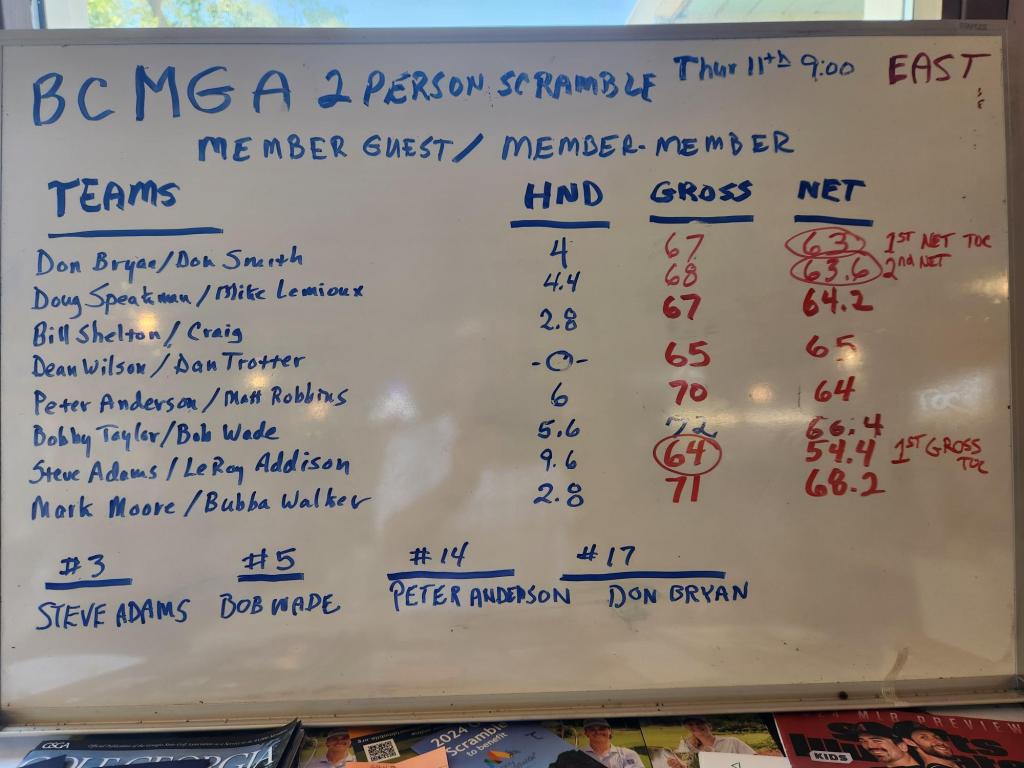 BCMGA 2 PERSON SCRAMBLE Thur 11th 9:00 EAST
MEMBER GUEST / MEMBER-MEMBER
TEAMS HND GROSS NET
Don Bryan/Don Smith 4 67 63 1ST NET TOC
Doug Speakman/Mike Lemioux 4.4 68 63.6 2nd NET
Bill Shelton/Craig 2.8 67 64.2
Dean Wilson/Dan Trotter -0- 65 65
Peter Anderson/Matt Robbins 6 70 64
Bobby Taylor/Bob Wade 5.6 72 66.4
Steve Adams/LeRoy Addison 9.6 64 54.4 1ST GROSS TOC
Mark Moore/Bubba Walker 2.8 71 68.2
#3 #5 #14 #17
STEVE ADAMS BOB WADE PETER ANDERSON DON BRYAN
GSGA
GOLF GEORGIA
2024
Scramble
to benefit
MLB PREVIEW
KIDS